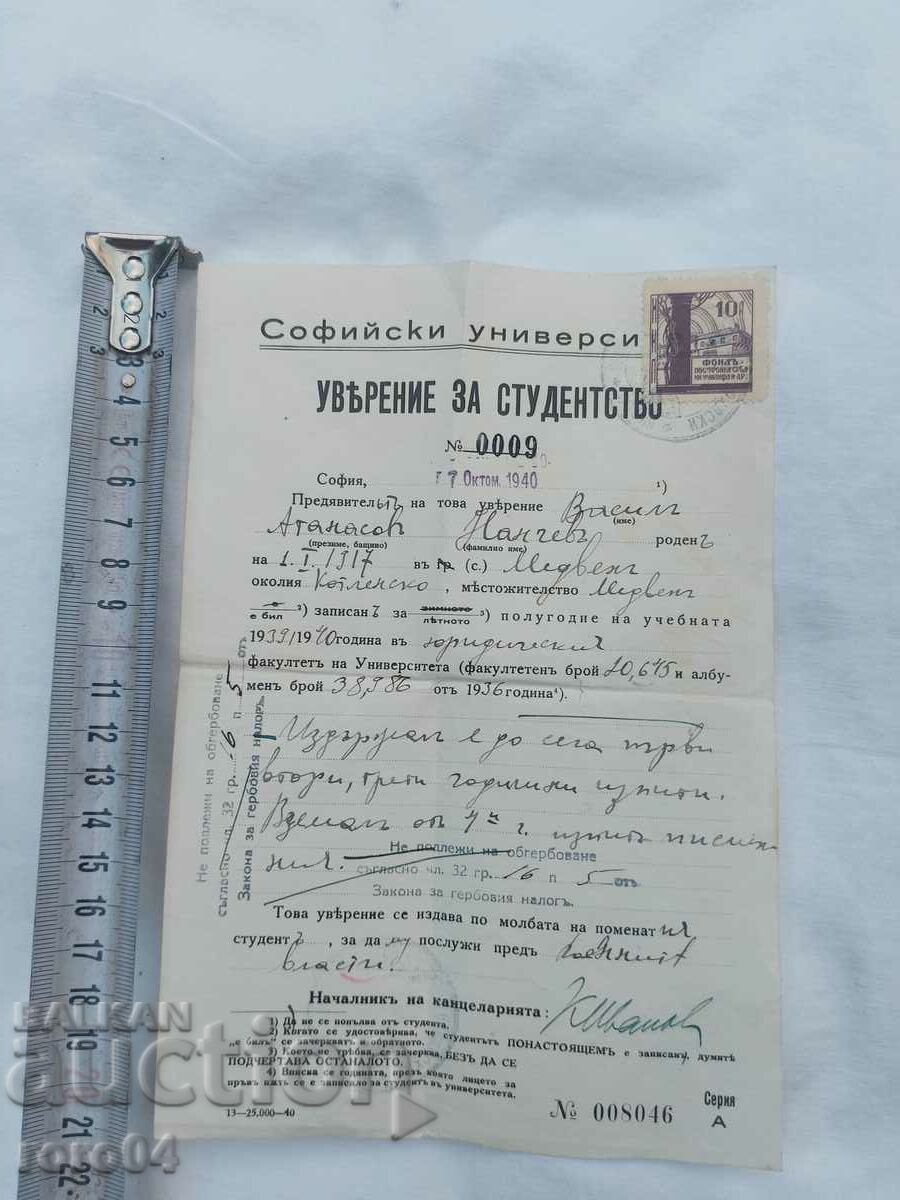 Софийски универси
10
ФОНДЪ
УВѢРЕНИЕ ЗА СТУДЕНТСТВО
№ 0009
София, 7 Октом. 1940 ¹)
Предявительтъ на това уверение Василъ
(име)
Атанасовъ Нанчевъ роденъ
(презиме, бащино) (фамилно име)
на 1. I. 1917 въ гр. (с.) Медвенъ
околия Котленско, мѣстожителство Медвенъ
е
е бил ²) записанъ за зимното
лѣтното ³) полугодие на учебната
1939/1940 година въ юридически
факултетъ на Университета (факултетенъ брой 20,645 и албу-
менъ брой 38,986 отъ 1936 година⁴).
Издържал е до сега първи
втори, трети годишни изпити.
Вземалъ от 4и г. изпит писмен-
ния.
Не подлежи на обгербоване
съгласно чл. 32 гр. 16 п 5 отъ
Закона за гербовия налогъ.
Не подлежи на обгербоване
съгласно чл. 32 гр. 16 п 5 отъ
Закона за гербовия налогъ.
Това уверение се издава по молбата на поменатия
студентъ, за да му послужи предъ военнит
власти.
Началникъ на канцеларията: К Иванов
1) Да не се попълва отъ студента.
2) Когато се удостоверява, че студентътъ ПОНАСТОЯЩЕМЪ е записанъ, думитѣ
„е билъ“ се зачеркватъ и обратното.
3) Което не трѣбва, се зачерква, БЕЗЪ ДА СЕ
ПОДЧЕРТАВА ОСТАНАЛОТО.
4) Вписва се годината, презъ която лицето за
пръвъ пѫть се е записало за студентъ въ университета.
13—25,000—40
№ 008046
Серия
А
БАЛКАН
auction
roro04
2 3 2 3 4 5 6 7 8 9 10 11 12 13 14 15 16 17 18 19 20 21 22